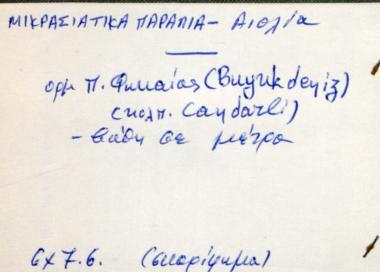 ΜΙΚΡΑΣΙΑΤΙΚΑ ΠΑΡΑΛΙΑ - Αιολία
ορμ Π. Φωκαίας (Buyuk deniz)
(κολπ. Candarli)
- βάθη σε μέτρα
6χ7.6. (σκαρίφημα)